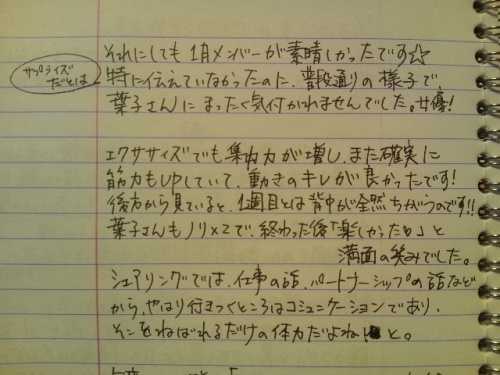 それにしても1月メンバーが素晴しかったです☆
サプライズ
だとは
特に伝えていなかったのに、普段通りの様子で、
葉子さんにまったく気付かれませんでした。女優!
エクササイズでも集中力が増し、また確実に
筋力もUPしていて、動きのキレが良かったです!
後方から見ていると、1週目とは背中が全然ちがうのです!!
葉子さんもノリ×2で、終わった後「楽しかったの」と
満面の笑みでした。
シェアリングでは、仕事の話、パートナーシップの話など
から、やはり行きつくところはコミュニケーションであり、
そこをねばれるだけの体力だよね と。